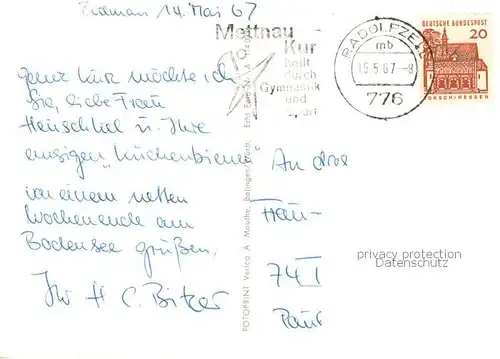 14. Mai 67
Ganz kurz möchte ich
Sie, liebe Frau
Henschkel u. Ihre
emsigen "Küchenbienen"
von einem netten
Wochenende am
Bodensee grüßen,
Ihr H C. Bitzer
Mettnau
Kur
heilt
durch
Gymnastik
und
Sport
RADOLFZELL
mb
15.5.67.-8
776
DEUTSCHE BUNDESPOST
20
LORSCH/HESSEN
FOTOPRINT Verlag A. Mauthe, Balingen/Württ.
An das
Frau-
74 T
privacy protection
Datenschutz